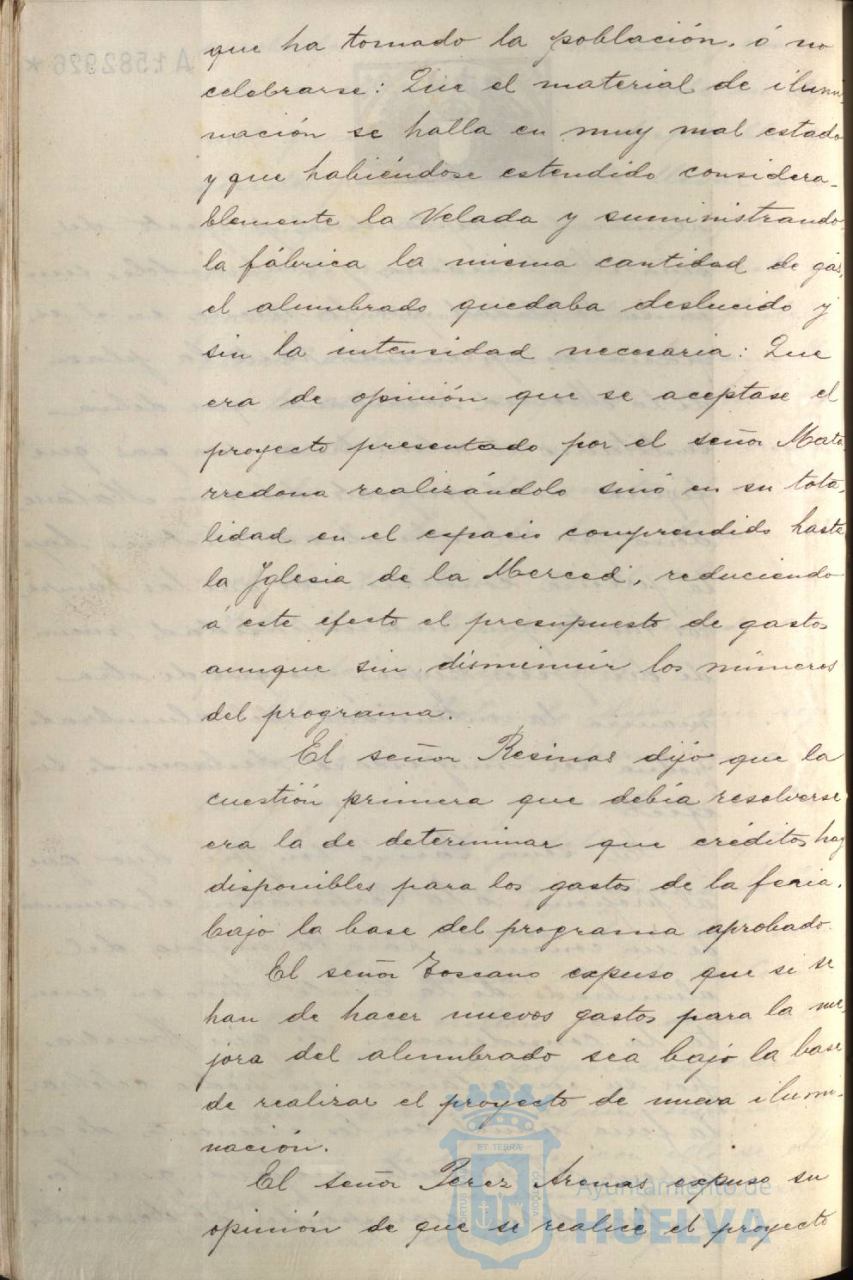 que ha tomado la población. ó no
celebrarse: Que el material de ilumi-
nación se halla en muy mal estado
y que habiéndose estendido considera-
blemente la Velada y suministrando
la fábrica la misma cantidad de gas,
el alumbrado quedaba deslucido y
sin la intensidad necesaria: Que
era de opinión que se aceptase el
proyecto presentado por el señor Mata-
rredona realizándolo sinó en su tota-
lidad en el espacio comprendido hasta
la Iglesia de la Merced, reduciendo
á este efecto el presupuesto de gastos
aunque sin disminuir los números
del programa.
El señor Resinas dijo que la
cuestión primera que debía resolverse
era la de determinar que créditos hay
disponibles para los gastos de la feria,
bajo la base del programa aprobado.
El señor Toscano expuso que si se
han de hacer nuevos gastos para la me-
jora del alumbrado sea bajo la base
de realizar el proyecto de nueva ilumi-
nación.
El señor Perez Arenas expuso su
opinión de que se realice el proyecto
A1582926*
ET TERRA
Ayuntamiento de
HUELVA